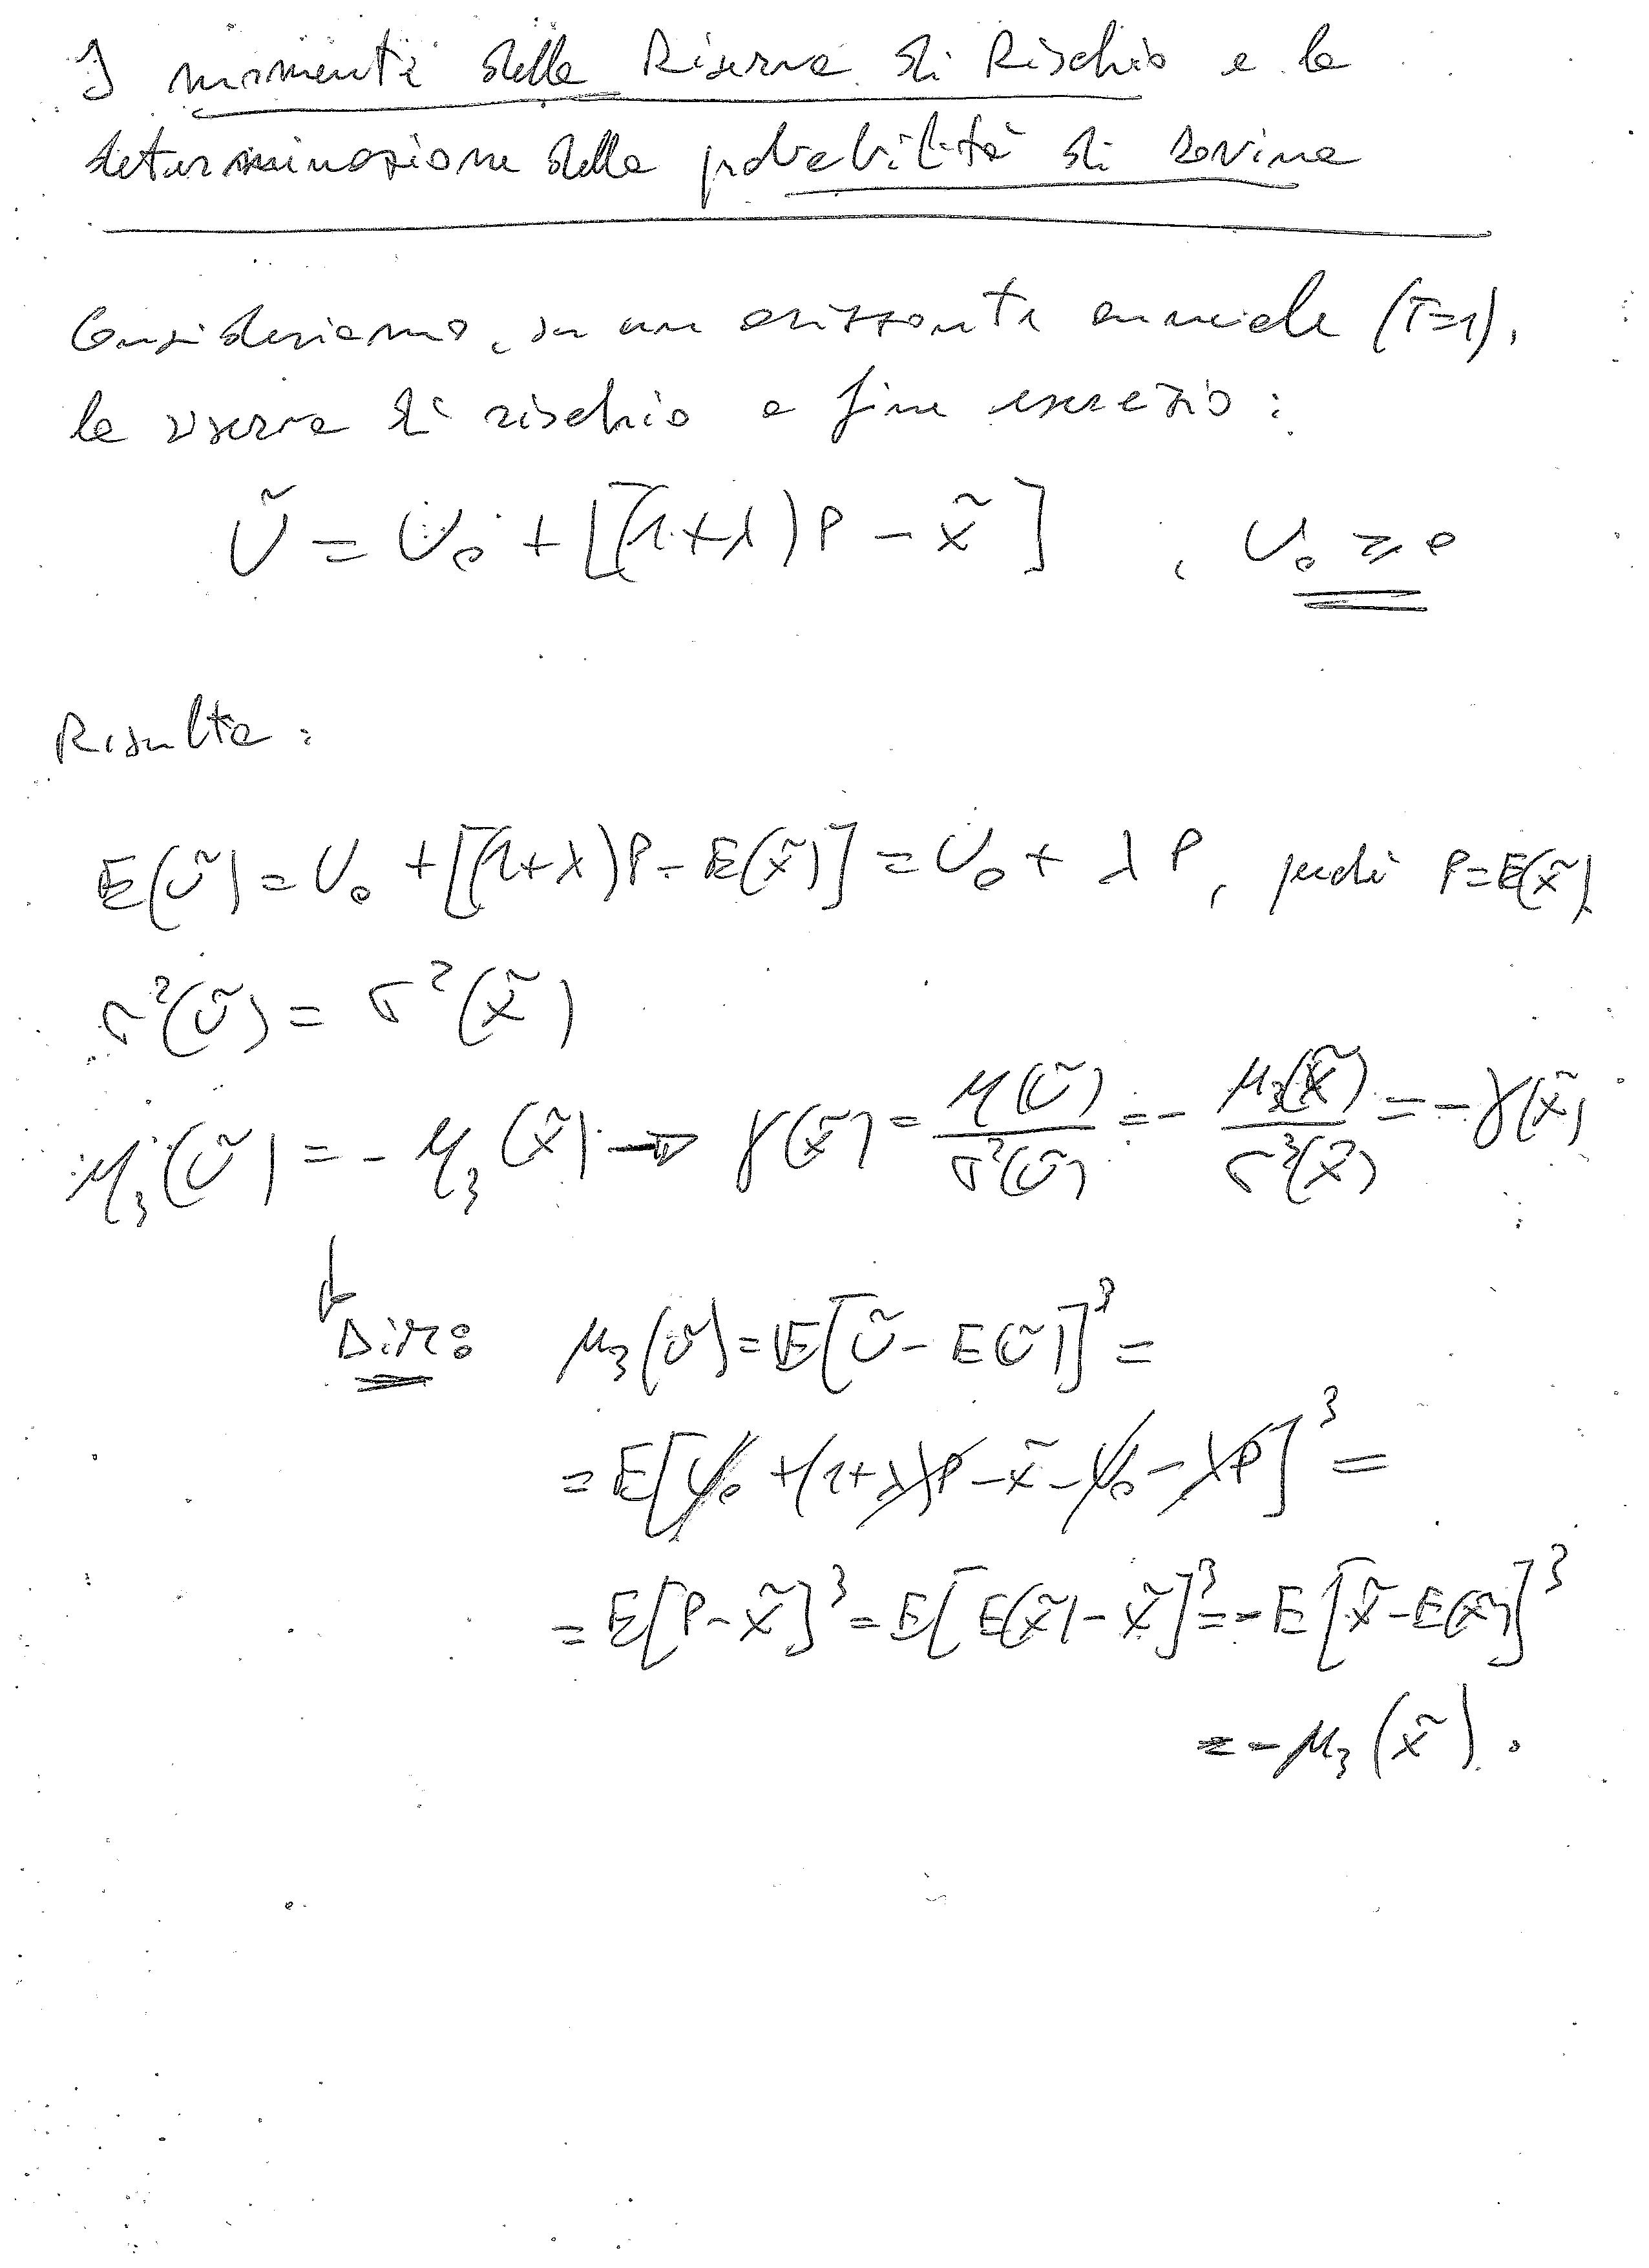 I momenti della Riserva di Rischio e la
determinazione della probabilità di rovina
Consideriamo, su un orizzonte annuale (T=1),
la riserva di rischio a fine esercizio:
Ũ = U₀ + [(1+λ)P − X̃] , U₀ ≥ 0
Risulta:
E(Ũ) = U₀ + [(1+λ)P − E(X̃)] = U₀ + λP, perchè P=E(X̃)
σ²(Ũ) = σ²(X̃)
μ₃(Ũ) = − μ₃(X̃) → γ(X̃) = μ(Ũ)/σ³(Ũ) = − μ₃(X̃)/σ³(X̃) = − γ(X̃)
Dim: μ₃(Ũ) = E[Ũ − E(Ũ)]³ =
= E[U₀ + (1+λ)P − X̃ − U₀ − λP]³ =
= E[P − X̃]³ = E[E(X̃) − X̃]³ = − E[X̃ − E(X̃)]³
= − μ₃(X̃).